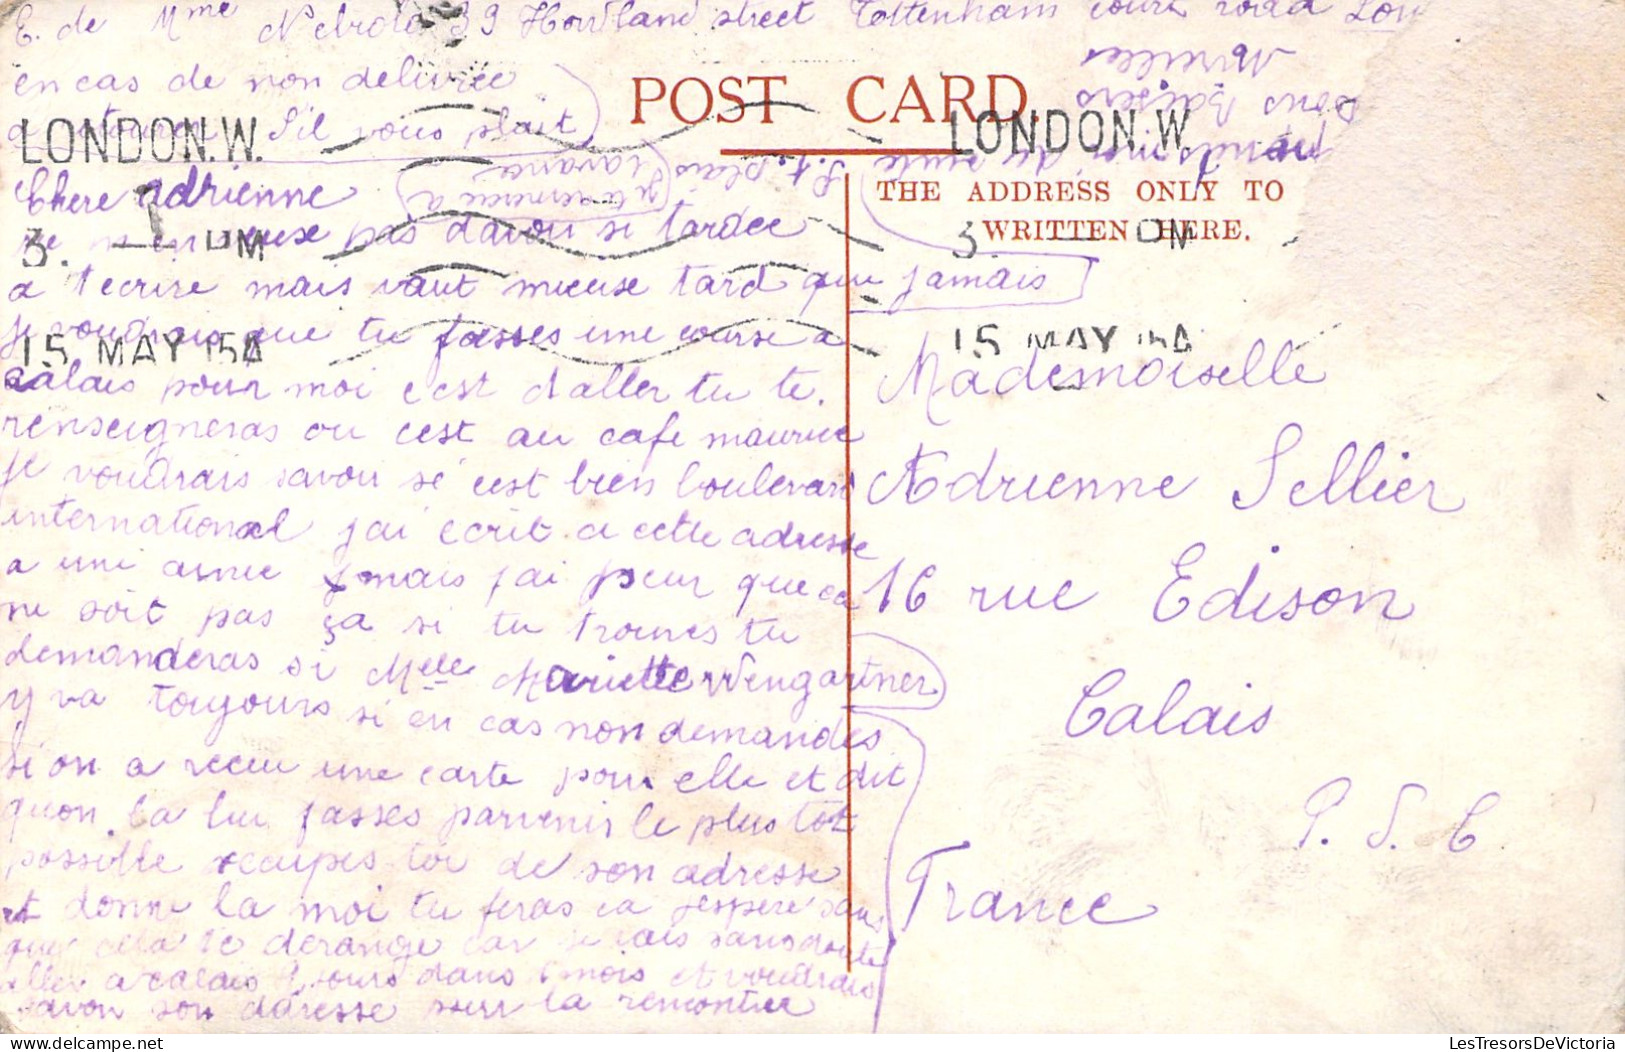 E. de Mme 39 Howland street Tottenham Court road Lon
en cas de non delivrée
a retourer S'il vous plait
POST CARD.
LONDON.W.
LONDON.W.
THE ADDRESS ONLY TO
WRITTEN HERE.
Chere adrienne
je m'excuse pas d'avoir si tardee
a t'ecrire mais vaut mieuse tard que jamais
je voudrais que tu fasses une course a
calais pour moi c'est d'aller tu te.
renseigneras ou c'est au cafe maurice
je voudrais savoir si c'est bien boulevard
international j'ai ecrit a cette adresse
a une amie mais j'ai peur que ca
ne soit pas ça si tu trouves tu
demanderas si Melle Mariette Wengartner
y va toujours si en cas non demandes
si on a recu une carte pour elle et dit
qu'on la lui fasses parvenir le plus tot
possible occupes toi de son adresse
et donne la moi tu feras ca j'espere sans
que cela te derange car je vais sans doute
aller a calais jours dans 1 mois et voudrais
savoir son adresse pour la rencontrer
S.t. plais
je t'remercie d'avance
bons Baisers
3. PM
15 MAY 15
3. PM
15 MAY 15
Mademoiselle
Adrienne Sellier
16 rue Edison
Calais
P. d. C
France
LesTresorsDeVictoria.com
LesTresorsDeVictoria